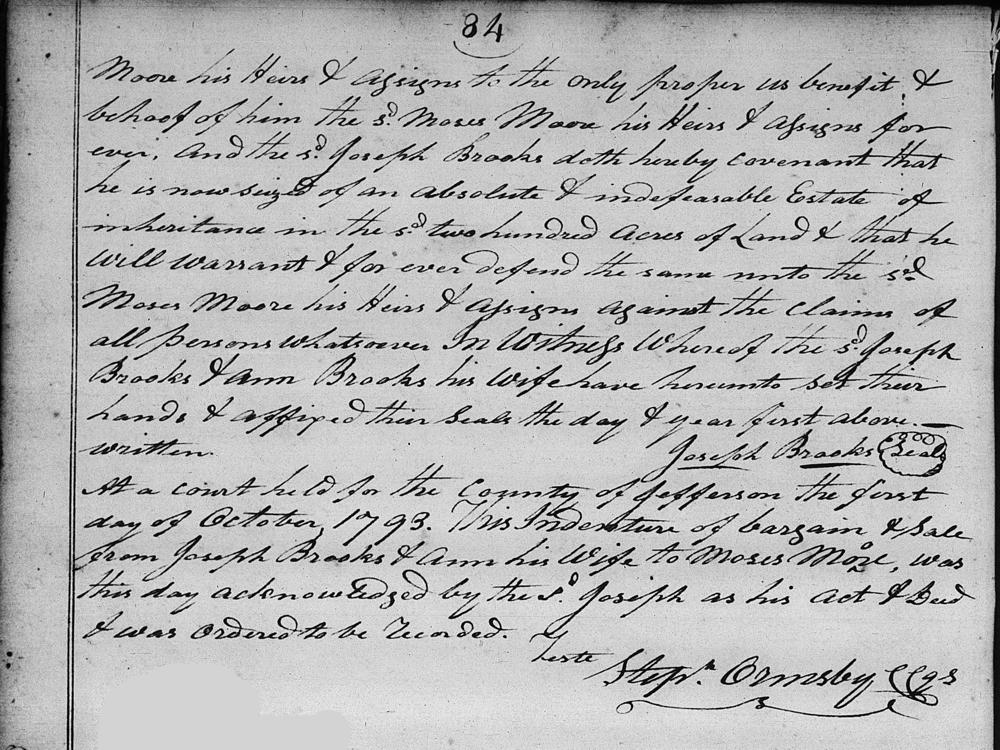 84
Moore his Heirs & assigns to the only proper us benefit &
behoof of him the sd. Moses Moore his Heirs & assigns for
ever. And the sd. Joseph Brooks doth hereby covenant that
he is now siezd of an absolute & indefeasable Estate of
inheritance in the sd. two hundred Acres of Land & that he
will warrant & for ever defend the same unto the sd
Moses Moore his Heirs & assigns against the Claims of
all persons whatsoever In Witness Whereof the sd. Joseph
Brooks & Ann Brooks his Wife have hereunto set their
hands & affixed their seals the day & year first above. —
written.
Joseph Brooks Seal
At a court held for the County of Jefferson the first
day of October, 1793. This Indenture of bargain & Sale
from Joseph Brooks & Ann his Wife to Moses More, was
this day acknowledged by the sd. Joseph as his Act & Deed
& was ordered to be recorded.
Teste
Stepn. Ormsby